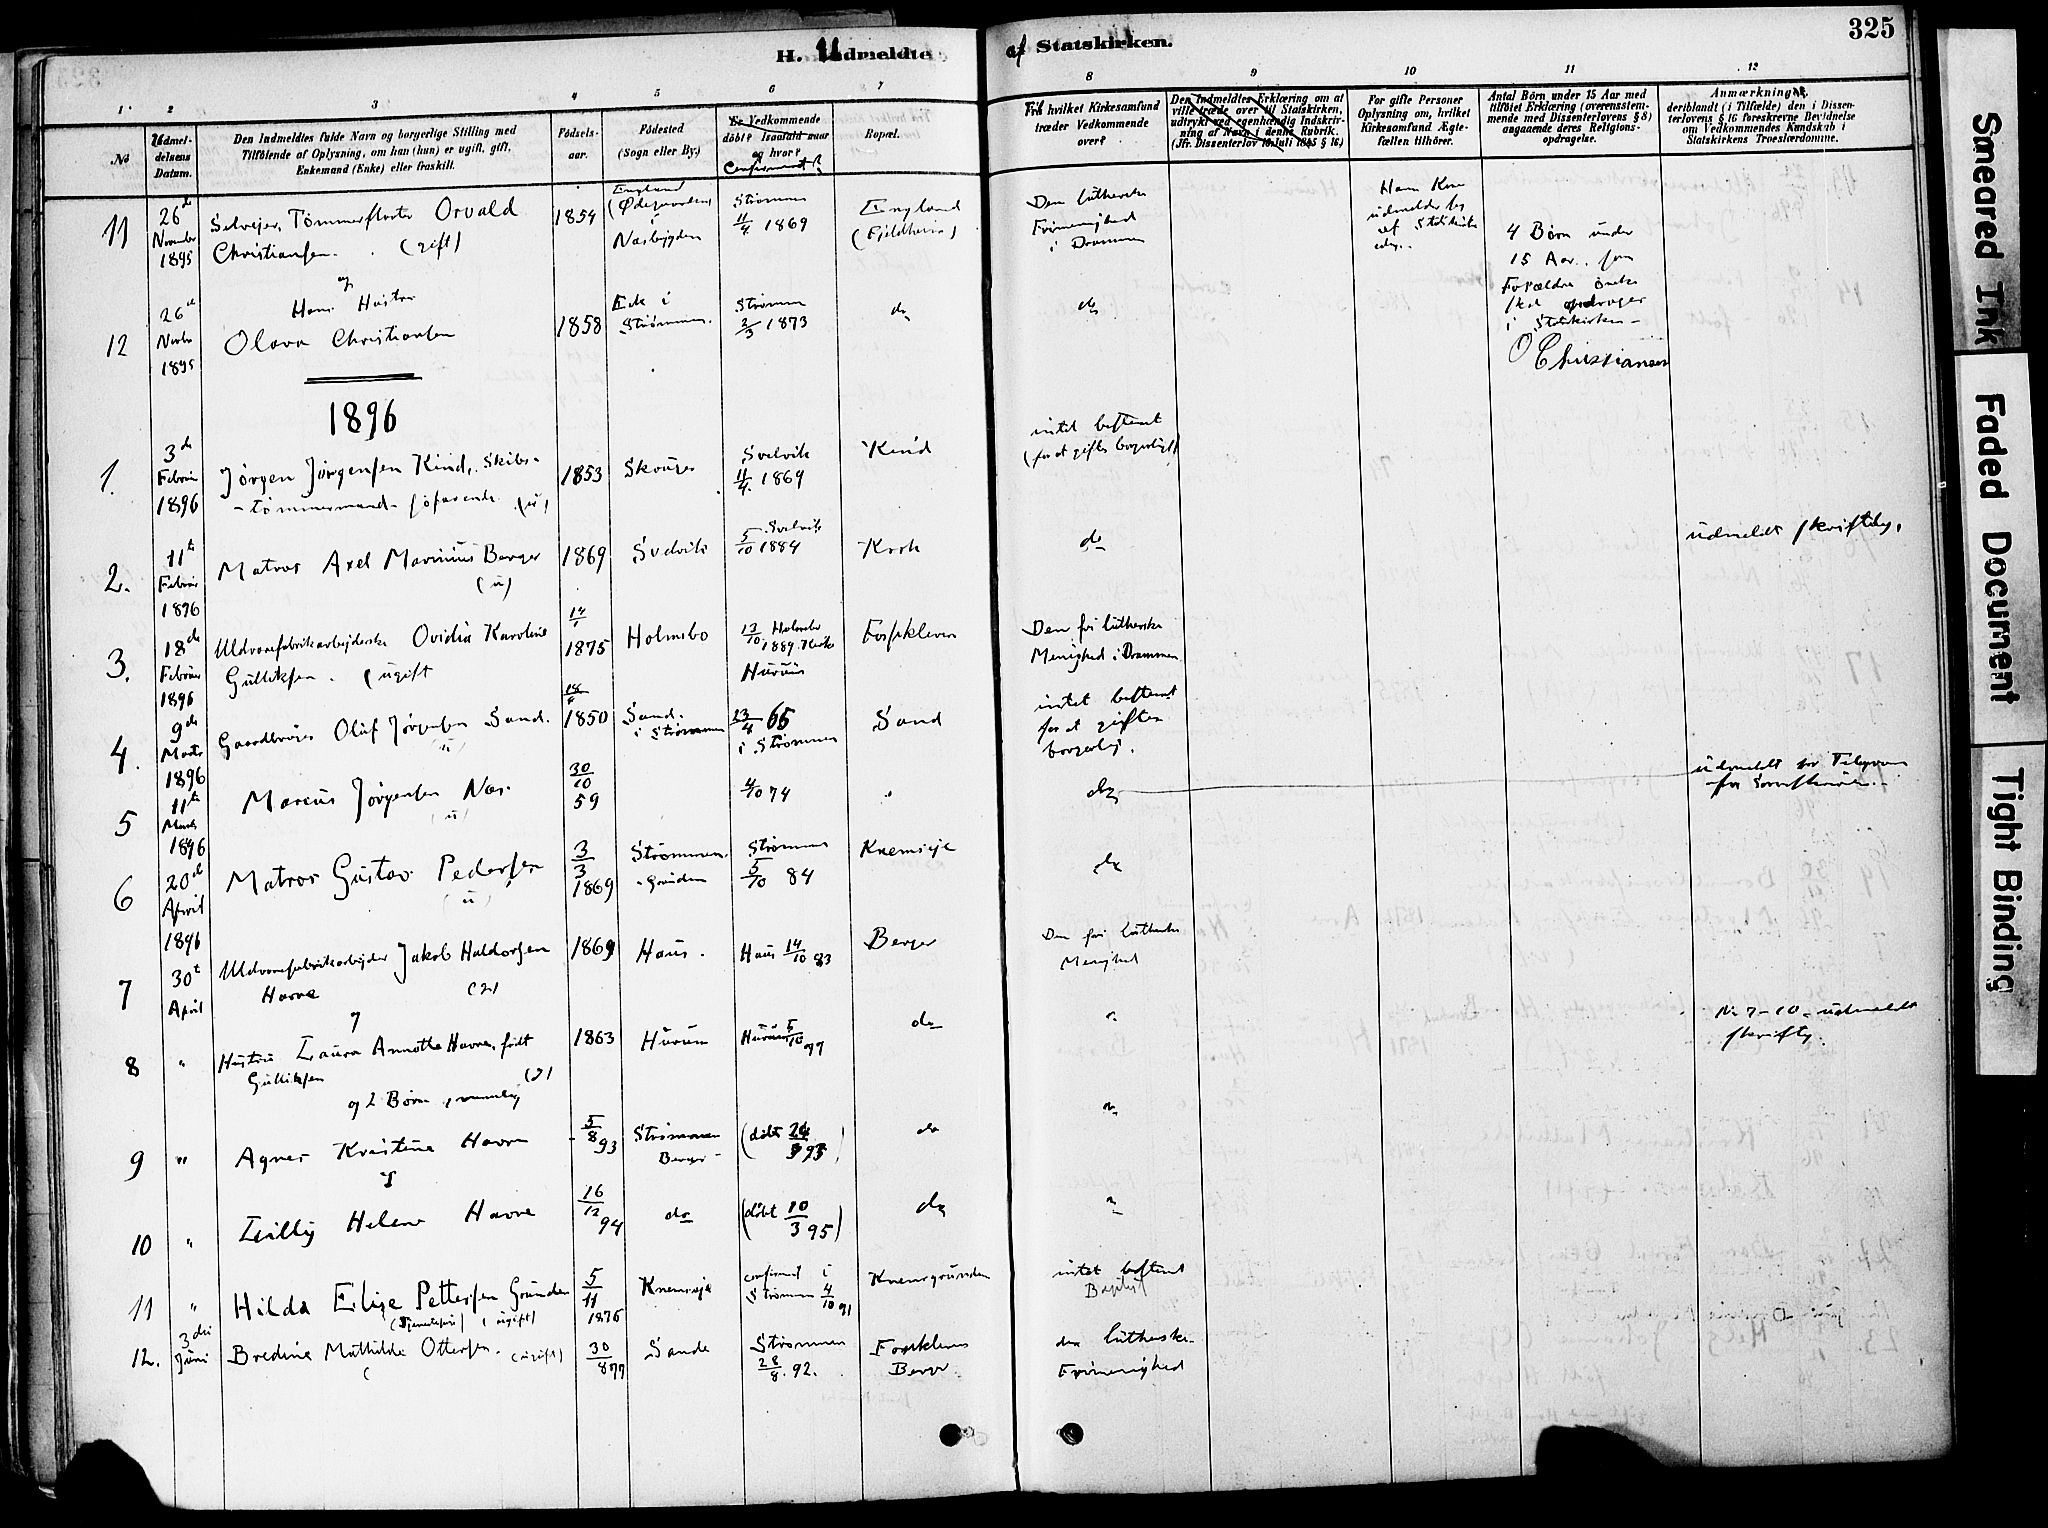 325
H. Udmeldte af Statskirken.
1 2 3 4 5 6 7 8 9 10 11 12
No
Udmel-
delsens
Datum.
Den Indmeldtes fulde Navn og borgerlige Stilling med
Tilføiende af Oplysning, om han (hun) er ugift, gift,
Enkemand (Enke) eller fraskilt.
Fødsels-
aar.
Fødested
(Sogn eller By.)
Er Vedkommende
döbt? Isaafald naar
og hvor?
Confirmeret?
Bopæl.
Til hvilket Kirkesamfund
træder Vedkommende
over?
Den Indmeldtes Erklæring om at
ville træde over til Statskirken,
udtrykt ved egenhændig Indskriv-
ning af Navn i denne Rubrik.
(Jfr. Dissenterlov 16 Juli 1845 § 16.)
For gifte Personer
Oplysning om, hvilket
Kirkesamfund Ægte-
fællen tilhörer.
Antal Börn under 15 Aar med
tilföiet Erklæring (overensstem-
mende med Dissenterlovens § 8)
angaaende deres Religions-
opdragelse.
Anmærkninger,
deriblandt (i Tilfælde) den i Dissen-
terlovens § 16 foreskrevne Bevidnelse
om Vedkommendes Kundskab i
Statskirkens Troeslærdomme.
11 26de November 1895
Selveier, Tømmerfløter Orvald
Christiansen. (gift)
1854
England
(Ødegaarden)
i
Næsbygden
Strømm
11/4 1869
England
(Fjeldheim)
Den lutherske
Frimenighed
i Drammen
Hans Kone
udmelder sig
af Statskirken
4 Børn under
15 Aar. som
Forældre ønske
skal opdrages
i Statskirken-
O Christiansen
og
12 26de Novbr 1895
Hans Hustru
Olava Christiansen
1858
Eek i
Strømmen.
Strømm
2/3 1873
do
do
1896
1. 3de Februar 1896
Jørgen Jørgensen Kind, Skibs-
-tømmermand- søfarende (u)
1853
Skouger
Svelvik
11/4. 1869
Kind
intet bestemt
(for at giftes borgerligt)
2. 11te Februar 1896
Matros Axel Marinius Berger
(u)
1869
Svelvik
Svelvik
5/10 1884
Krok
do
udmeldt skriftlig.
3. 18de Februar 1896
Uldvarefabrikarbeiderske Ovidia Karoline
Gulliksen. (ugift
14/1 1875
Holmsbo
13/10 1889. Holmsbo Kirke
Hurum
Fossekleven
Den fri lutherske
Menighed i Drammen
4. 9de Marts 1896
Gaardbruger Oluf Jørgensen Sand.
(u)
1850
Sand.
i Strømmen
23/4 66
i Strømmen
Sand
intet bestemt
for at giftes
borgerlig.
5 11te Marts 1896
Marcus Jørgensen Næs.
(u)
30/10 59
4/10 74
do
udmeldt pr Telegram
6 20de April 1896
Matros Gustav Pedersen
(u)
3/3 1869
Strømmen.
Strømmen
5/10 84
Knemsje
do
7 30t April
Uldvarefabrikarbeider Jakob Haldorsen
Havre (2)
1869
Haus.
Haus 14/10 83
Berger
Den fri lutherske
Menighed
og
8 "
Hustru Laura Annette Havre, født
Gulliksen (2)
1863
Hurum
Hurum 5/10 77
do
"
No 7-10 - udmeldt
skriftlig.
og 2 Børn, nemlig
9 "
Agnes Kristine Havre
5/8 93
Strømmen
Berger
(døbt
do
"
og
10 "
Lilly Helene Havre
16/12 94
do
(døbt 10/3 95)
do
"
11 "
Hilda Elise Pettersen Grunden
(Tjenestepige) (ugift)
5/11 1876
Knemsje
confirmert i
Strømmen 4/10 91
Knemsgrunden
intet bestemt
Baptist
12. 3die Juni
Bredine Mathilde Ottersen. (ugift)
30/8 77
Sande
Strømmen
28/8. 92.
Fossekleven
Berger
den lutherske
Frimenighed
Smeared Ink
Faded Document
Tight Binding